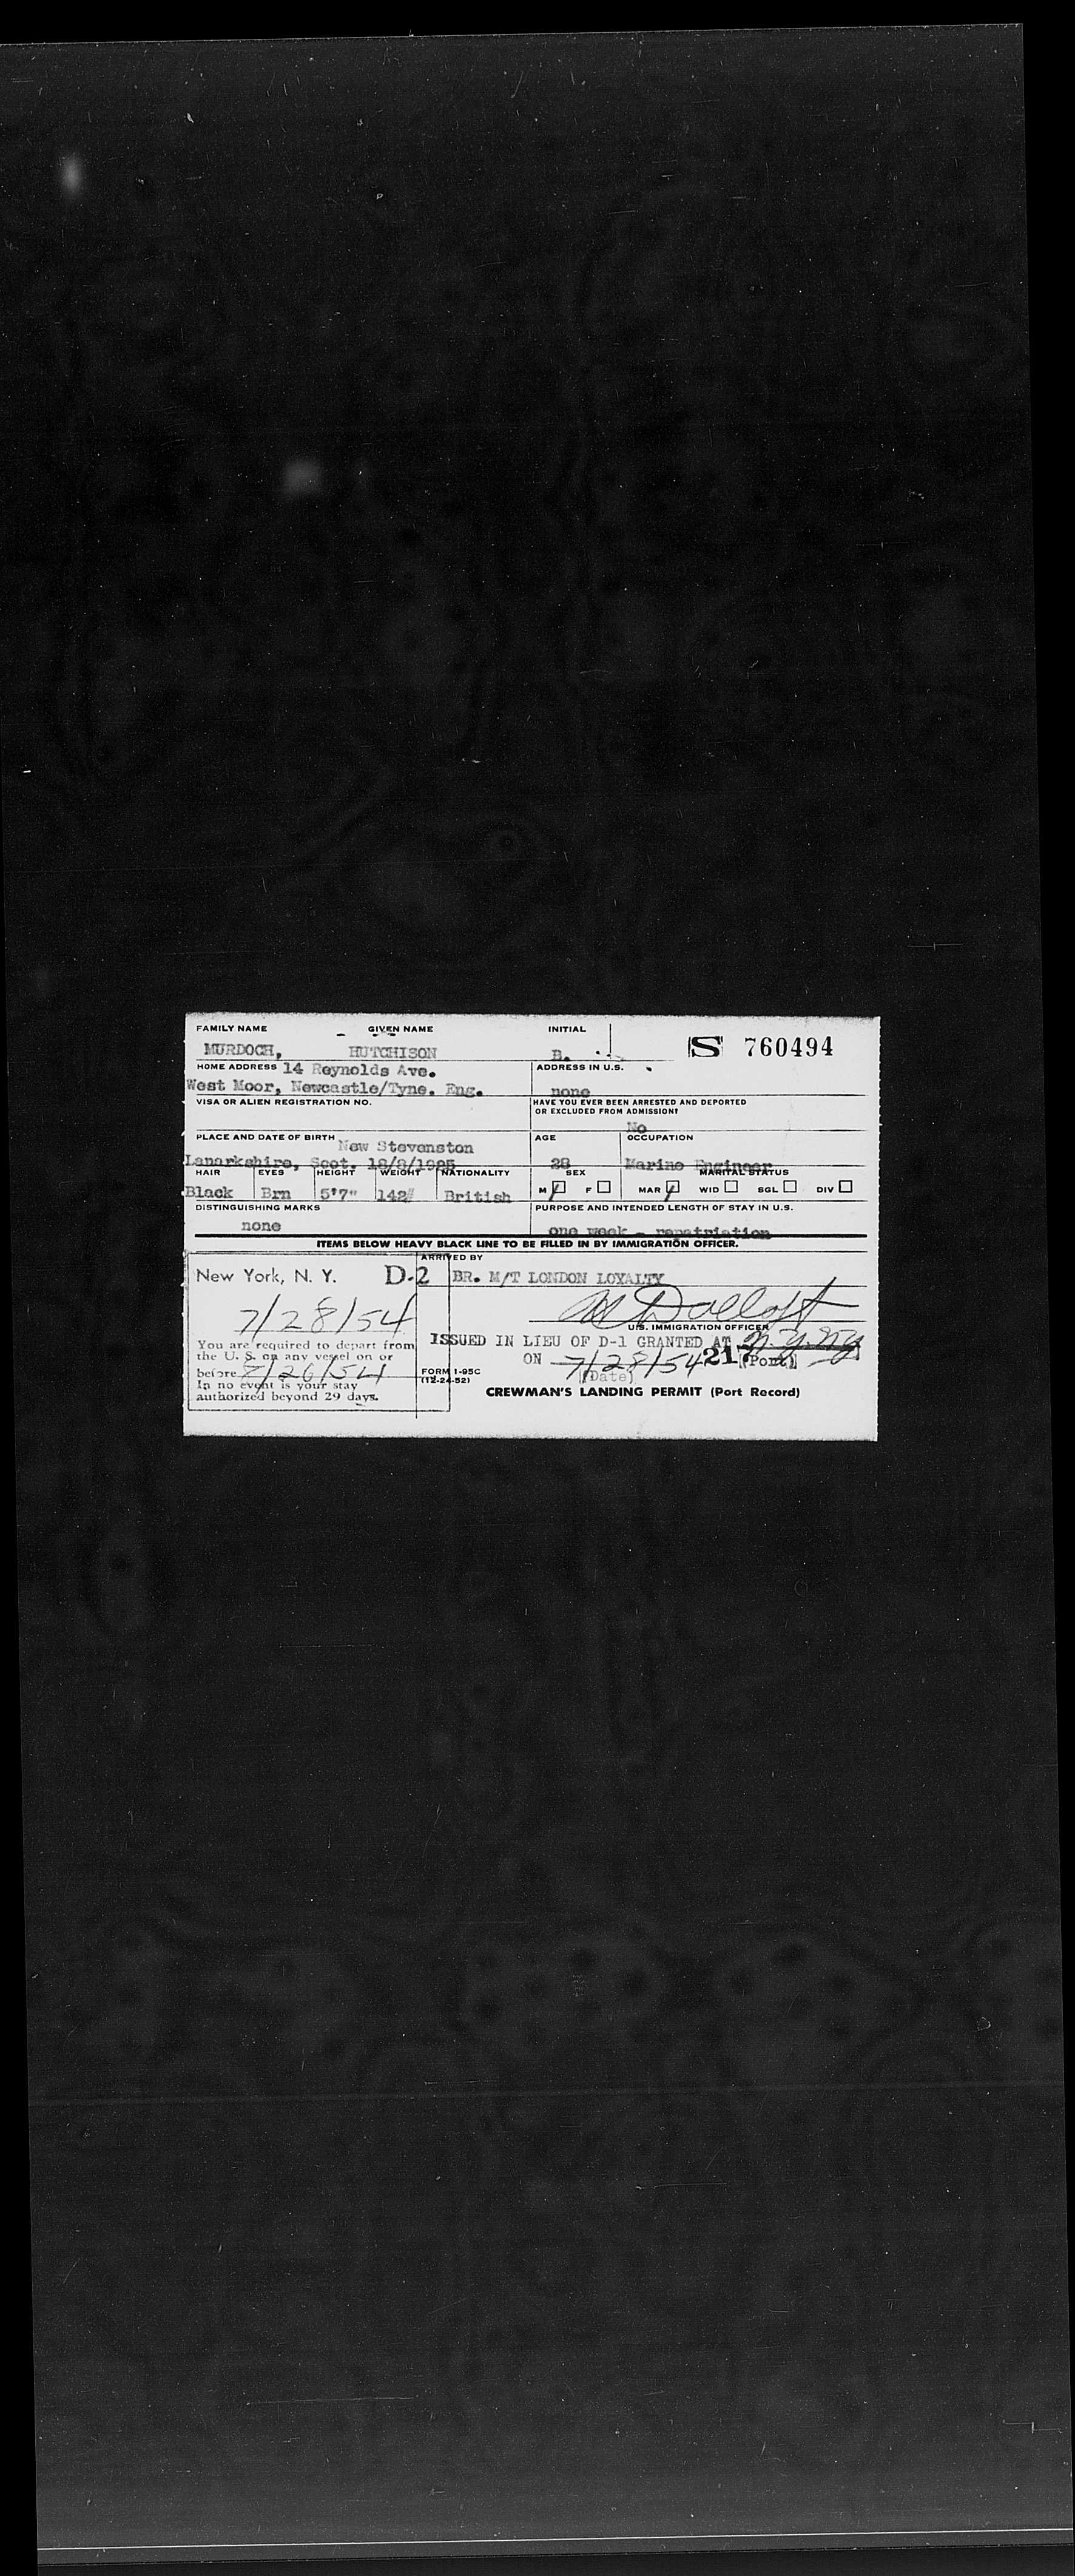 FAMILY NAME GIVEN NAME INITIAL
MURDOCH, HUTCHISON B. S 760494
HOME ADDRESS 14 Reynolds Ave. ADDRESS IN U.S.
West Moor, Newcastle/Tyne. Eng. none
VISA OR ALIEN REGISTRATION NO. HAVE YOU EVER BEEN ARRESTED AND DEPORTED
OR EXCLUDED FROM ADMISSION?
No
PLACE AND DATE OF BIRTH New Stevenston AGE OCCUPATION
Lanarkshire, Scot. 18/8/1925 28 Marine Engineer
HAIR EYES HEIGHT WEIGHT NATIONALITY SEX MARITAL STATUS
Black Brn 5'7" 142# British M F MAR WID SGL DIV
DISTINGUISHING MARKS PURPOSE AND INTENDED LENGTH OF STAY IN U.S.
none one week - repatriation
ITEMS BELOW HEAVY BLACK LINE TO BE FILLED IN BY IMMIGRATION OFFICER.
ARRIVED BY
New York, N. Y. D-2 BR. M/T LONDON LOYALTY
7/28/54
U.S. IMMIGRATION OFFICER
You are required to depart from ISSUED IN LIEU OF D-1 GRANTED AT N.Y. NY
the U. S. on any vessel on or ON 7/28/54 217 (Port)
before 8/26/54 FORM I-95C (Date)
In no event is your stay (12-24-52)
authorized beyond 29 days. CREWMAN'S LANDING PERMIT (Port Record)